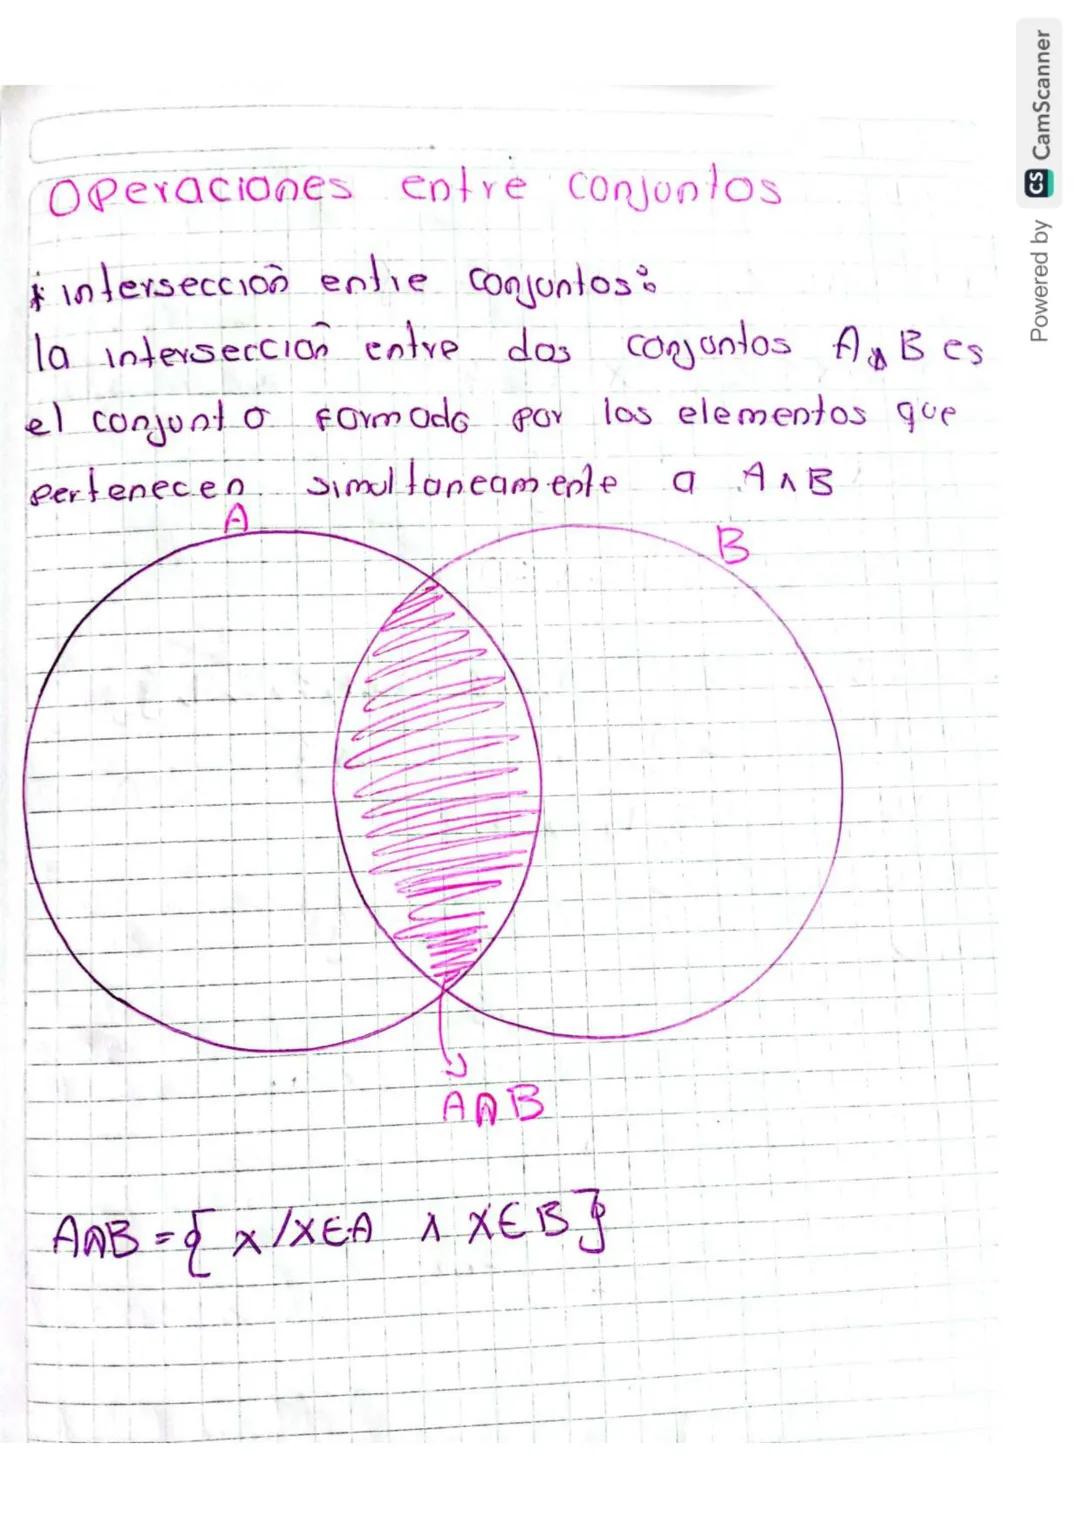 Operaciones entre conjuntos
* intersección entre conjuntos:
la intersección entre dos conjuntos A ∧ B es
el conjunto formado por los elementos que
pertenecen simultaneamente a A ∧ B
A
B
A∩B
A∩B = { x / x ∈ A ∧ x ∈ B }
Powered by CS CamScanner